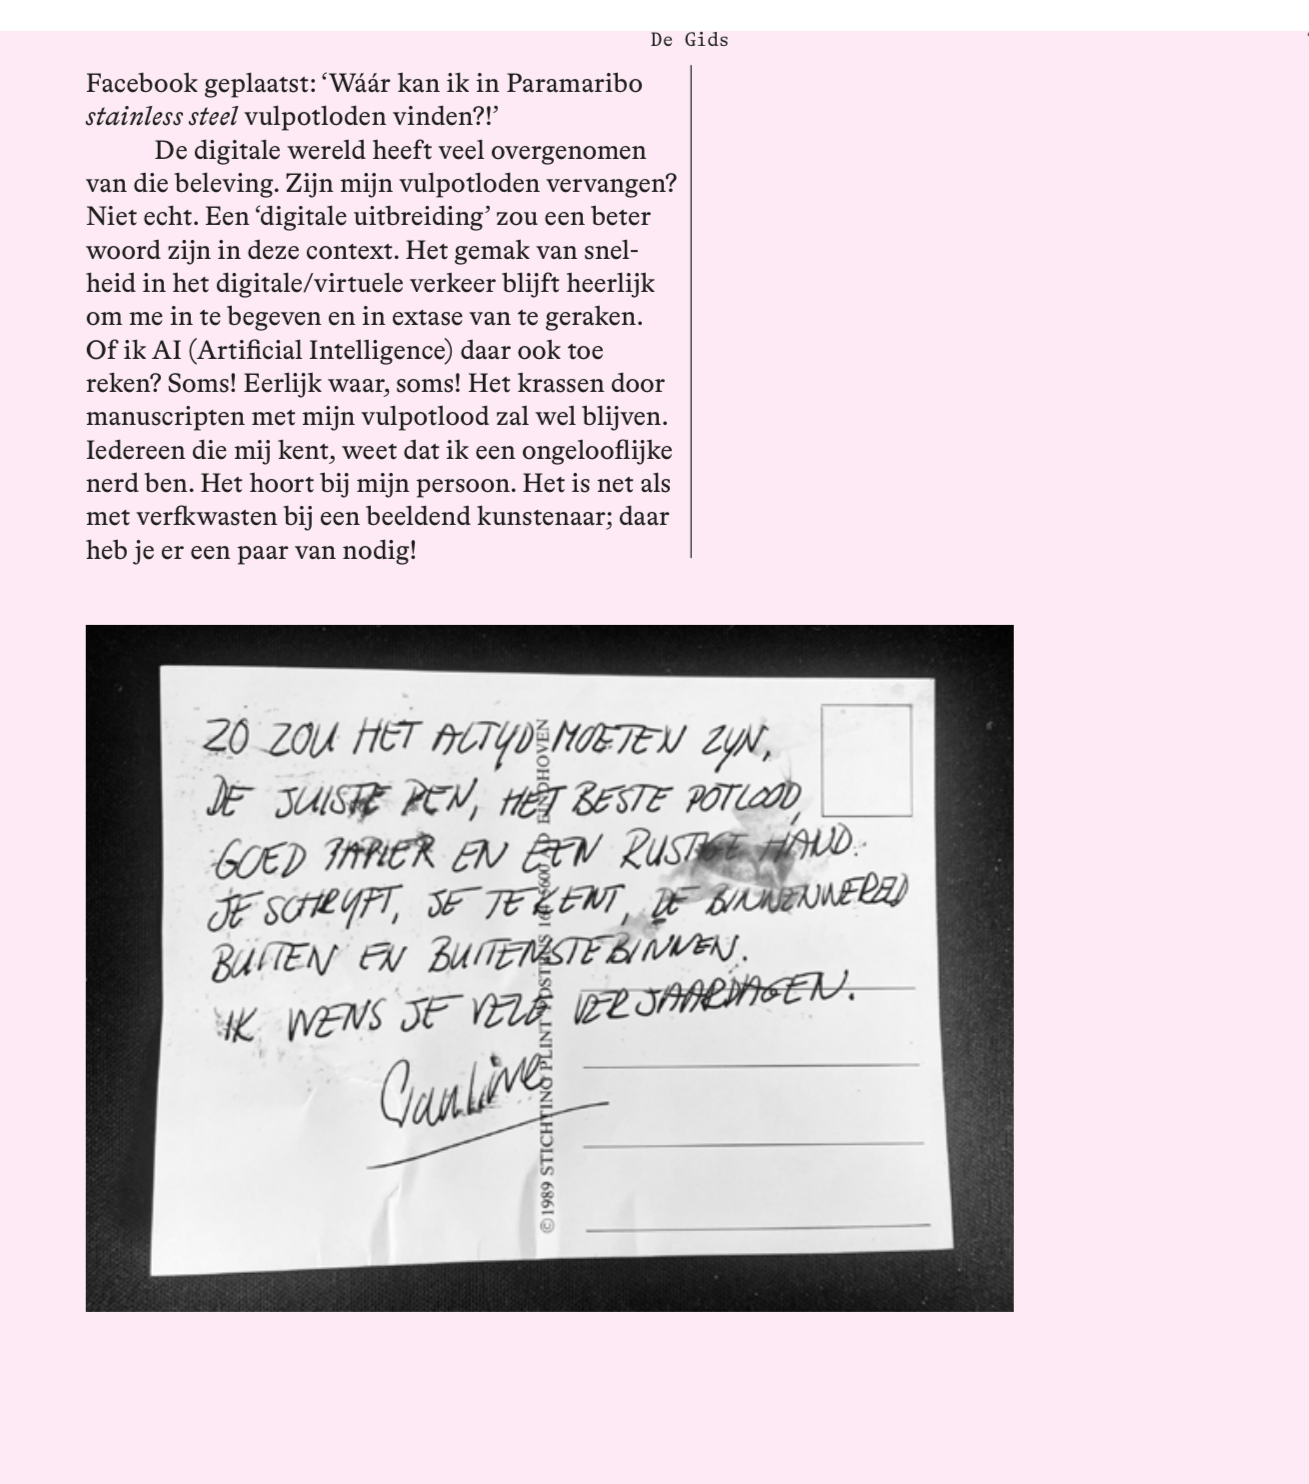 De Gids
Facebook geplaatst: ‘Wáár kan ik in Paramaribo
stainless steel vulpotloden vinden?!’
De digitale wereld heeft veel overgenomen
van die beleving. Zijn mijn vulpotloden vervangen?
Niet echt. Een ‘digitale uitbreiding’ zou een beter
woord zijn in deze context. Het gemak van snel-
heid in het digitale/virtuele verkeer blijft heerlijk
om me in te begeven en in extase van te geraken.
Of ik AI (Artificial Intelligence) daar ook toe
reken? Soms! Eerlijk waar, soms! Het krassen door
manuscripten met mijn vulpotlood zal wel blijven.
Iedereen die mij kent, weet dat ik een ongelooflijke
nerd ben. Het hoort bij mijn persoon. Het is net als
met verfkwasten bij een beeldend kunstenaar; daar
heb je er een paar van nodig!
ZO ZOU HET ALTYD MOETEN ZYN,
DE JUISTE PEN, HET BESTE POTLOOD,
GOED PAPIER EN EEN RUSTIGE HAND.
JE SCHRYFT, JE TEKENT, DE BINNENWERELD
BUITEN EN BUITENSTEBINNEN.
IK WENS JE VELE VERJAARDAGEN.
Pauline
©1989 STICHTING PLINT EINDHOVEN